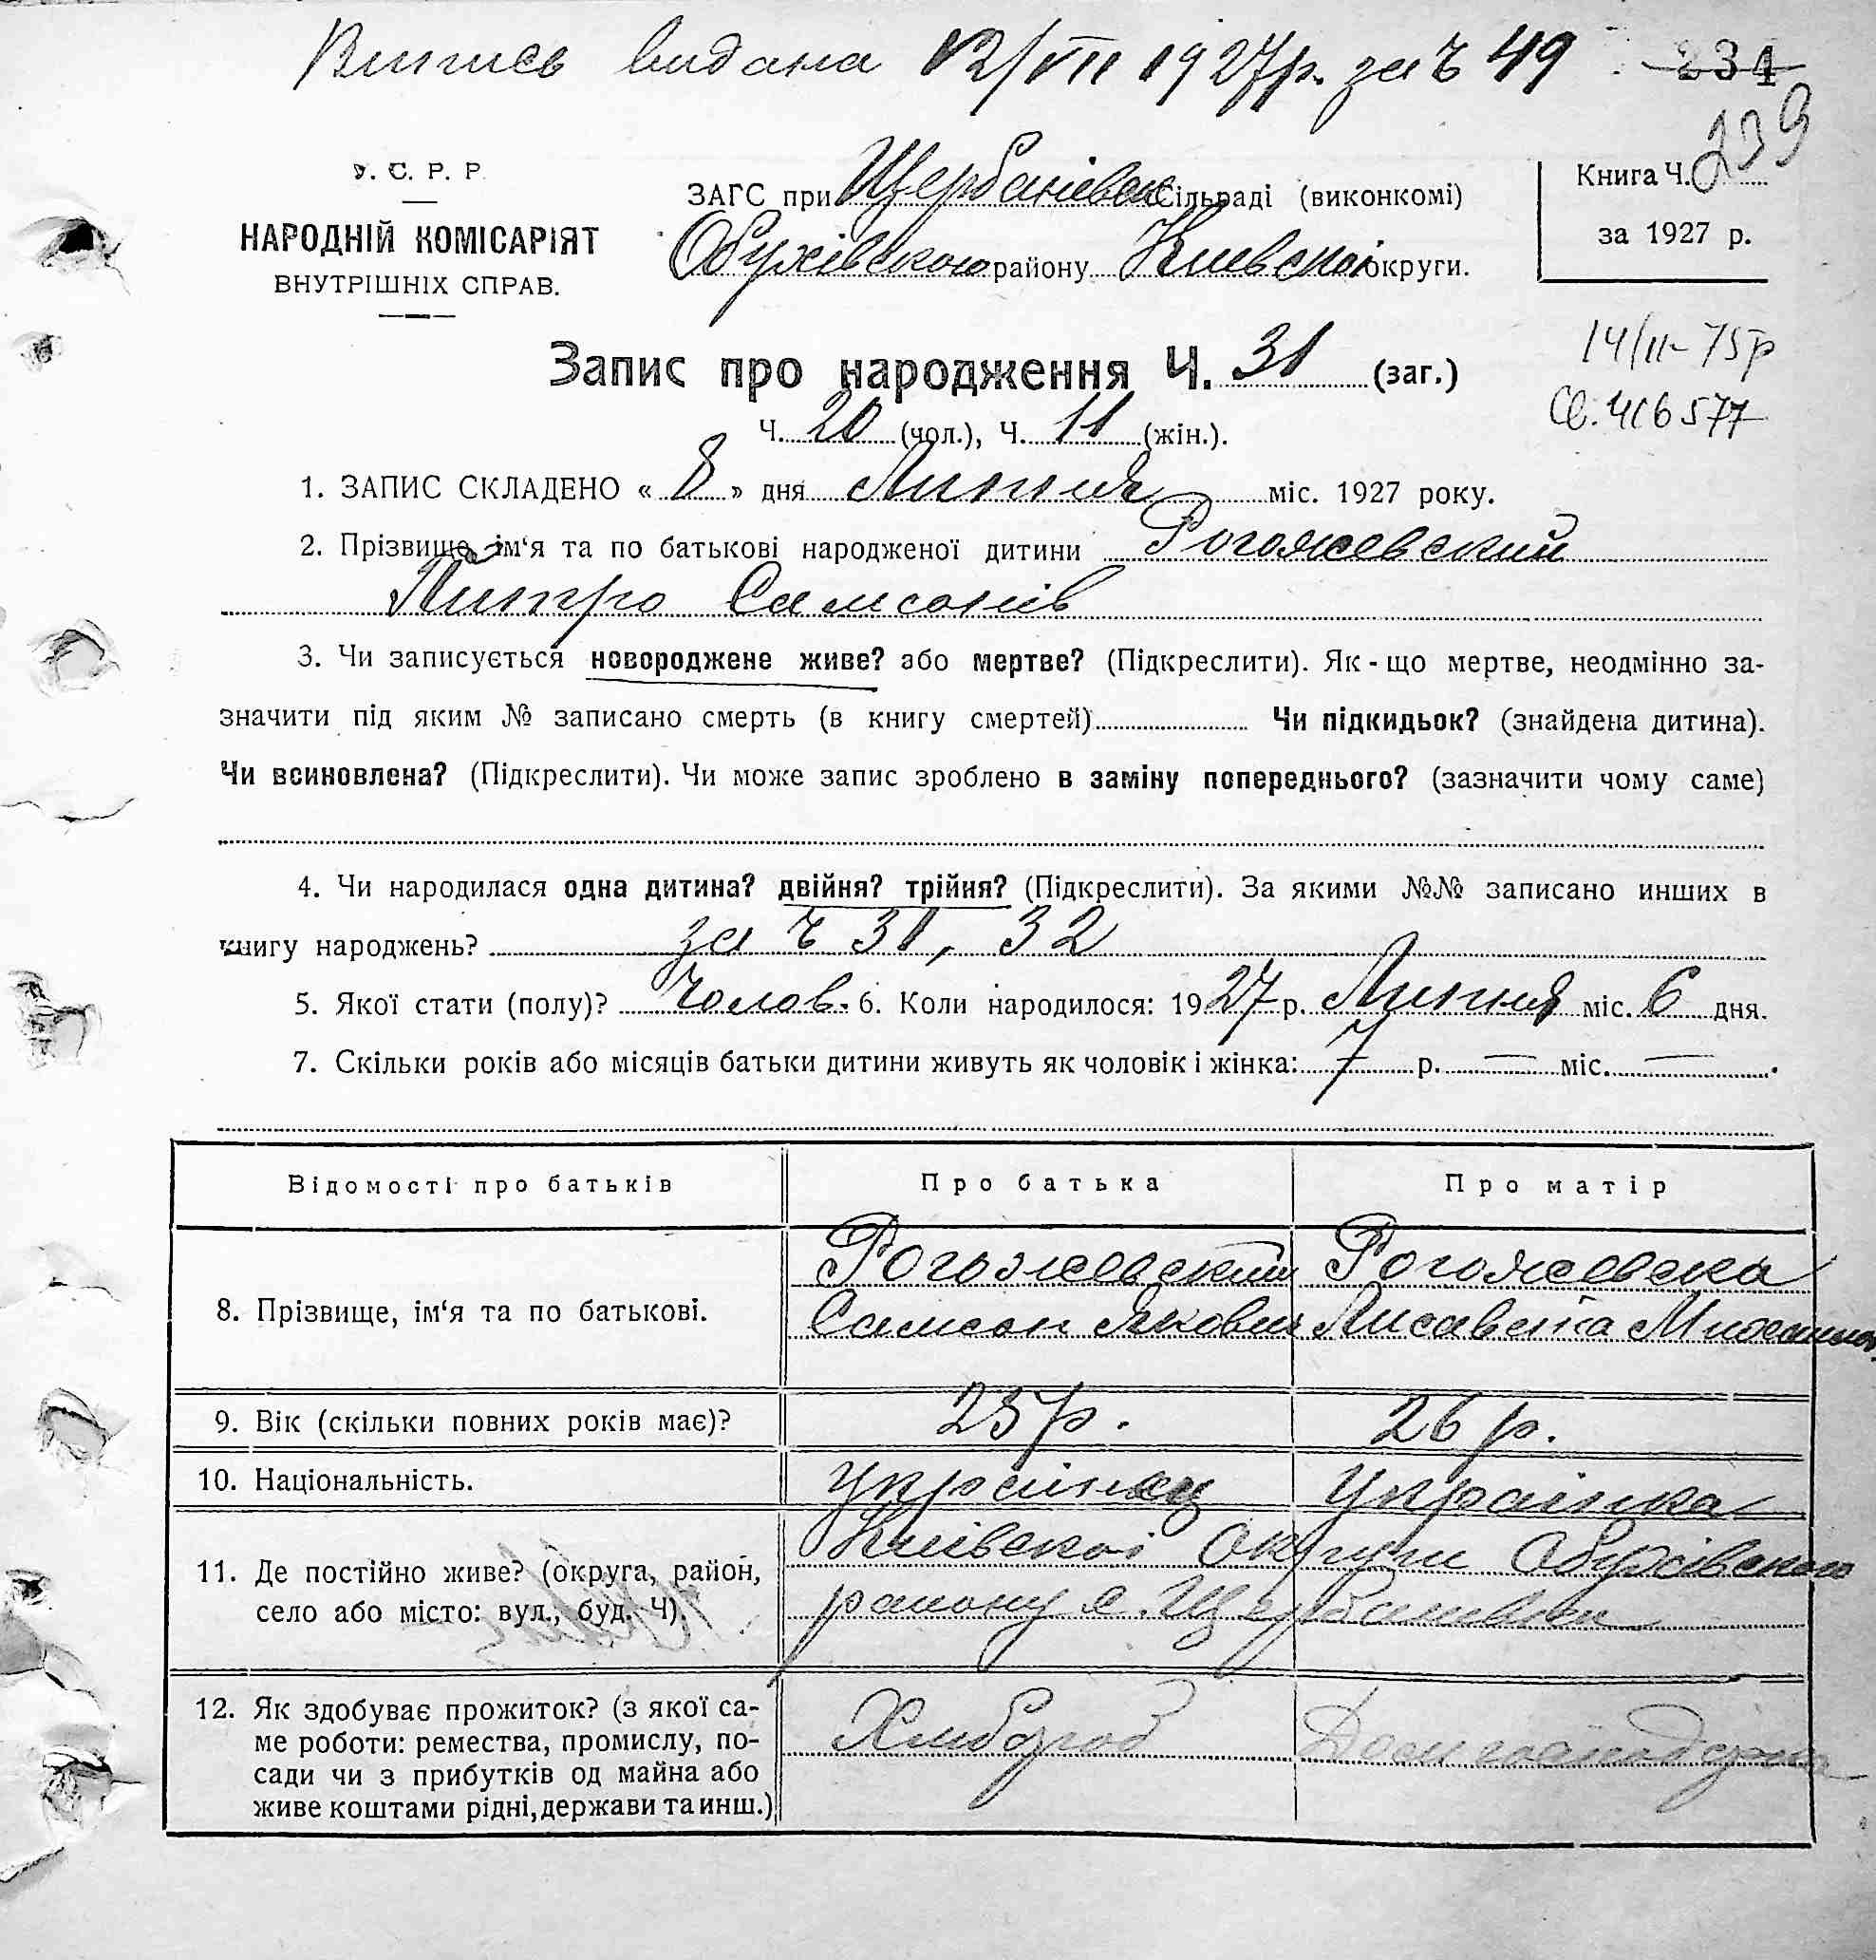 Витись видана 12/VII 1927р. за ч 49 234
239
У. С. Р. Р.
НАРОДНІЙ КОМІСАРІЯТ
ВНУТРІШНІХ СПРАВ.
ЗАГС при Щербанівск Сільраді (виконкомі)
Обухівського району Киевскоі округи.
Книга Ч.
за 1927 р.
Запис про народження Ч. 31 (заг.)
Ч. 20 (чол.), Ч. 11 (жін.).
14/II-75р
Св. 406577
1. ЗАПИС СКЛАДЕНО « 8 » дня Липня міс. 1927 року.
2. Прізвище, ім‘я та по батькові народженої дитини Рогожевский
Дмитро Самсонів
3. Чи записується новороджене живе? або мертве? (Підкреслити). Як - що мертве, неодмінно за-
значити під яким № записано смерть (в книгу смертей) Чи підкидьок? (знайдена дитина).
Чи всиновлена? (Підкреслити). Чи може запис зроблено в заміну попереднього? (зазначити чому саме)
4. Чи народилася одна дитина? двійня? трійня? (Підкреслити). За якими №№ записано инших в
книгу народжень? за ч 31, 32
5. Якої стати (полу)? Чолов. 6. Коли народилося: 1927 р. Липня міс. 6 дня.
7. Скільки років або місяців батьки дитини живуть як чоловік і жінка: 7 р. — міс. —.
Відомості про батьків Про батька Про матір
8. Прізвище, ім‘я та по батькові.
Рогожевский Рогожевска
Самсон Якович Лисавета
9. Вік (скільки повних років має)? 25 р. 26 р.
10. Національність. Українец Українка
11. Де постійно живе? (округа, район,
село або місто: вул., буд. Ч).
Київскоі округи Обухівского
району с. Щербанівки
12. Як здобуває прожиток? (з якої са-
ме роботи: ремества, промислу, по-
сади чи з прибутків од майна або
живе коштами рідні, держави та инш.)
Хлибороб